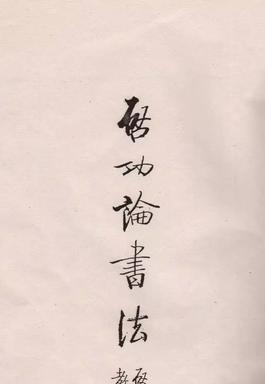 启功論書法